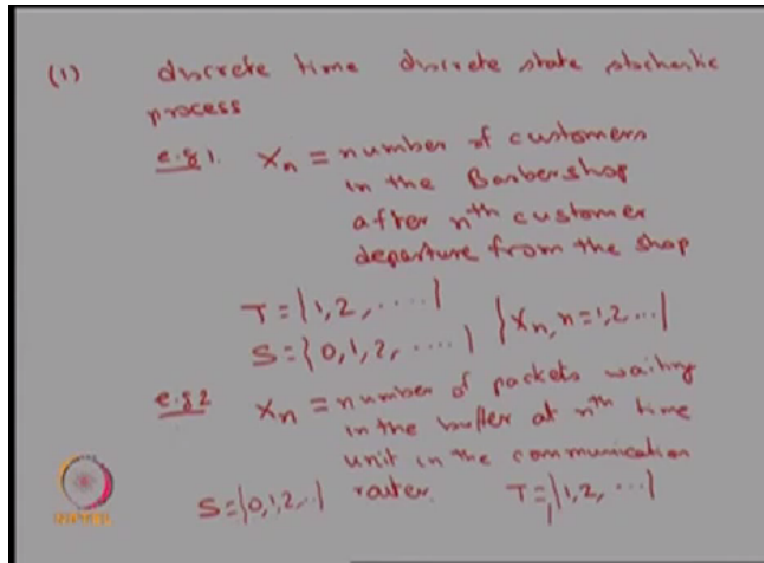 (1) discrete time discrete state stochastic
process
e.g 1. Xn = number of customers
in the Barbershop
after nth customer
departure from the shop
T = {1, 2, .....}
S = {0, 1, 2, .....} {Xn, n=1, 2, ...}
e.g 2 Xn = number of packets waiting
in the buffer at nth time
unit in the communication
router.
S = {0, 1, 2, ..} T = {1, 2, ...}
NPTEL